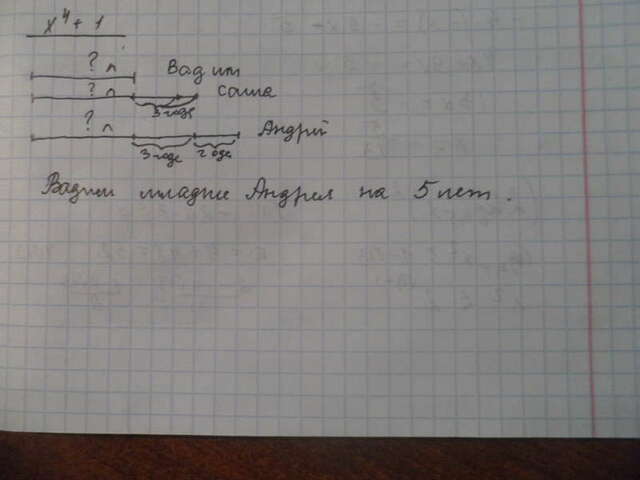 x⁴ + 1
? л
Вадим
? л
Саша
3 года
? л
Андрей
3 года 2 года
Вадим младше Андрея на 5 лет.